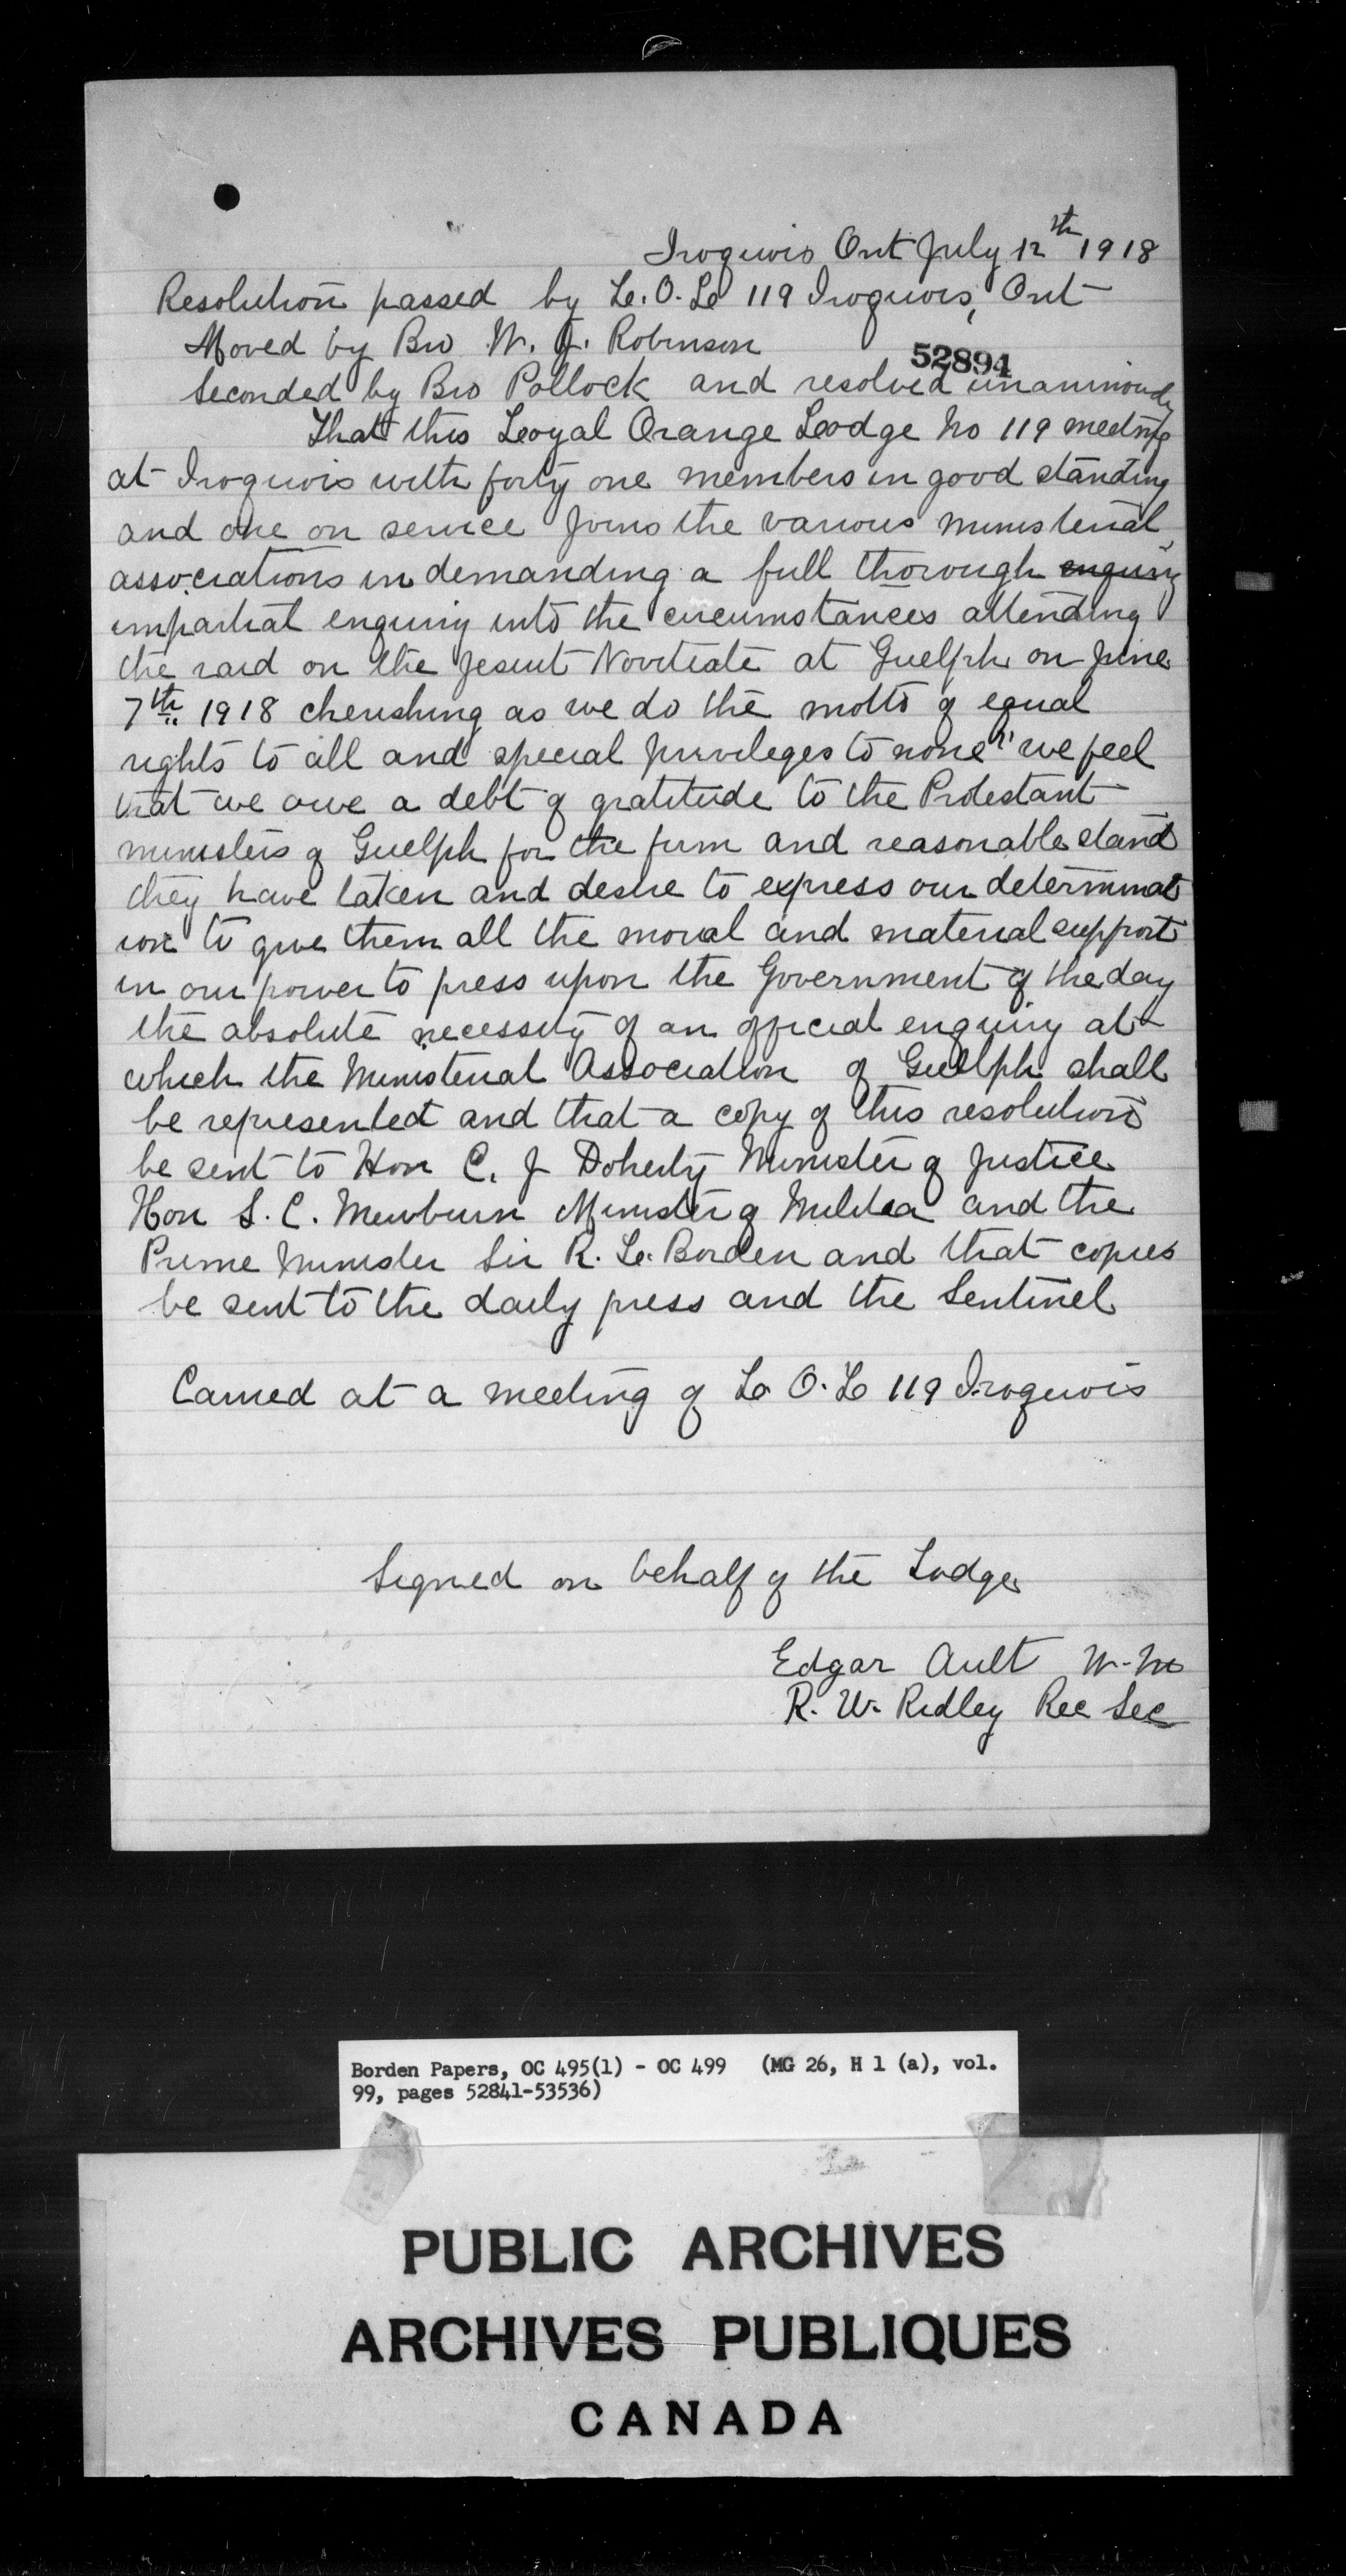 Iroquois Ont July 12th 1918
Resolution passed by L.O.L 119 Iroquois, Ont
Moved by Bro W. J. Robinson
52894
Seconded by Bro Pollock and resolved unanimously
That this Loyal Orange Lodge No 119 meeting
at Iroquois with forty one members in good standing
and one on service joins the various ministerial
associations in demanding a full thorough enquiry
impartial enquiry into the circumstances attending
the raid on the Jesuit Novitiate at Guelph on June
7th 1918 cherishing as we do the motto of equal
rights to all and special privileges to none" we feel
that we owe a debt of gratitude to the Protestant
ministers of Guelph for the firm and reasonable stand
they have taken and desire to express our determinat
ion to give them all the moral and material support
in our power to press upon the Government of the day
the absolute necessity of an official enquiry at
which the Ministerial Association of Guelph shall
be represented and that a copy of this resolution
be sent to Hon C. J Doherty Minister of Justice
Hon S. C. Mewburn Minister of Militia and the
Prime Minister Sir R. L. Borden and that copies
be sent to the daily press and the Sentinel
Carried at a meeting of L. O. L 119 Iroquois
Signed on behalf of the Lodge
Edgar Ault W.M
R. W. Ridley Rec Sec
Borden Papers, OC 495(1) - OC 499 (MG 26, H 1 (a), vol.
99, pages 52841-53536)
PUBLIC ARCHIVES
ARCHIVES PUBLIQUES
CANADA